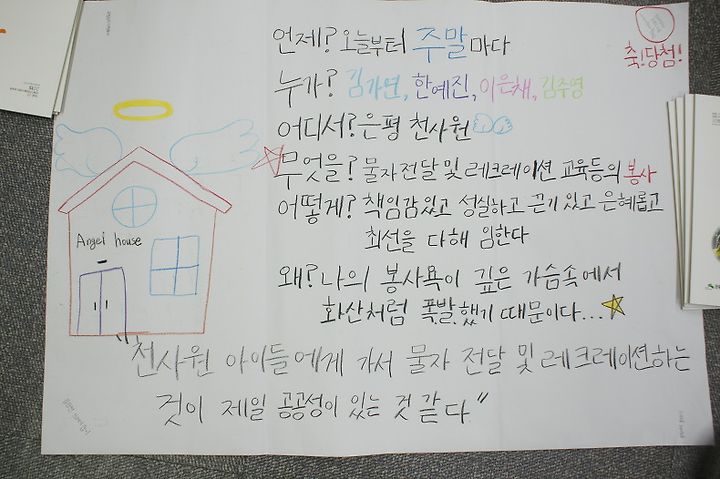 언제? 오늘부터 주말마다
축!당첨!
누가? 김가연, 한예진, 이은채, 김주영
어디서? 은평 천사원
무엇을? 물자전달 및 레크레이션 교육등의 봉사
어떻게? 책임감있고 성실하고 끈기있고 은혜롭고
최선을 다해 임한다
Angel house
왜? 나의 봉사욕이 깊은 가슴속에서
화산처럼 폭발했기 때문이다...
천사원 아이들에게 가서 물자 전달 및 레크레이션하는
것이 제일 공공성이 있는 것 같다"